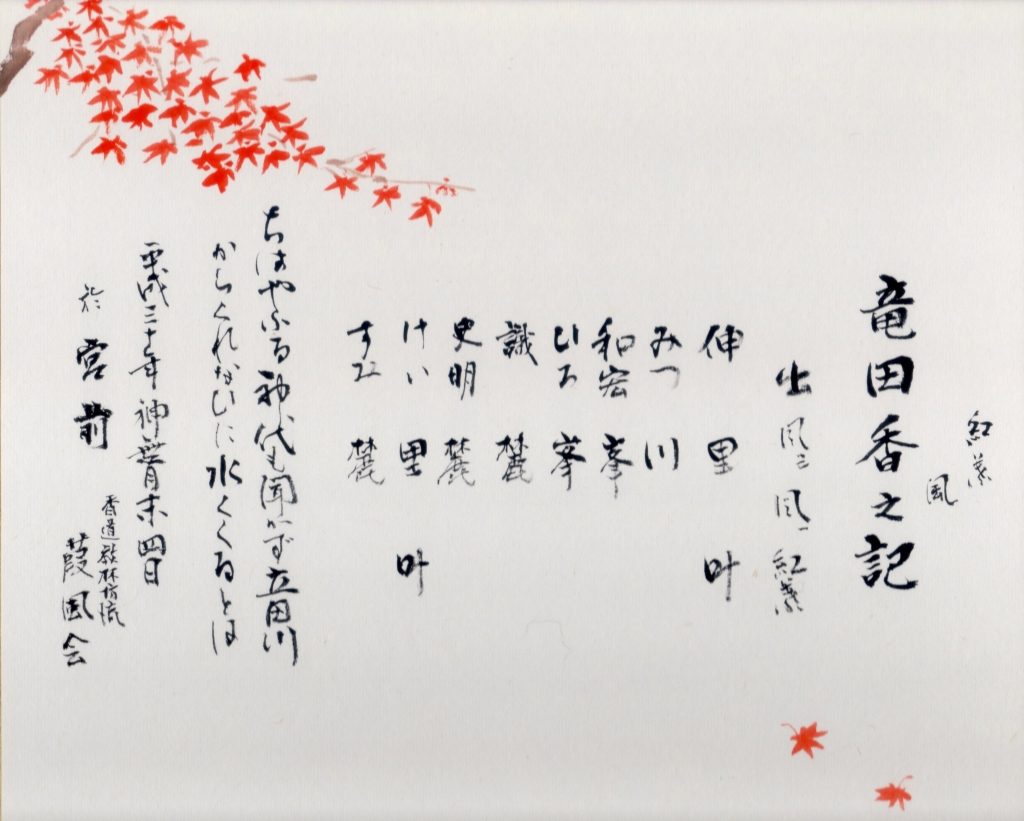 紅葉
風
竜田香之記
出 風三 風一 紅葉
伸 里 叶
みつ 川
和宏 峯
ひろ 峯
識 麓
史明 麓
けい 里 叶
すみ 麓
ちはやふる神代も聞かず立田川
からくれなゐに水くくるとは
平成二十年神無月末四日
於 宮前
香道 林坊流
葭風会